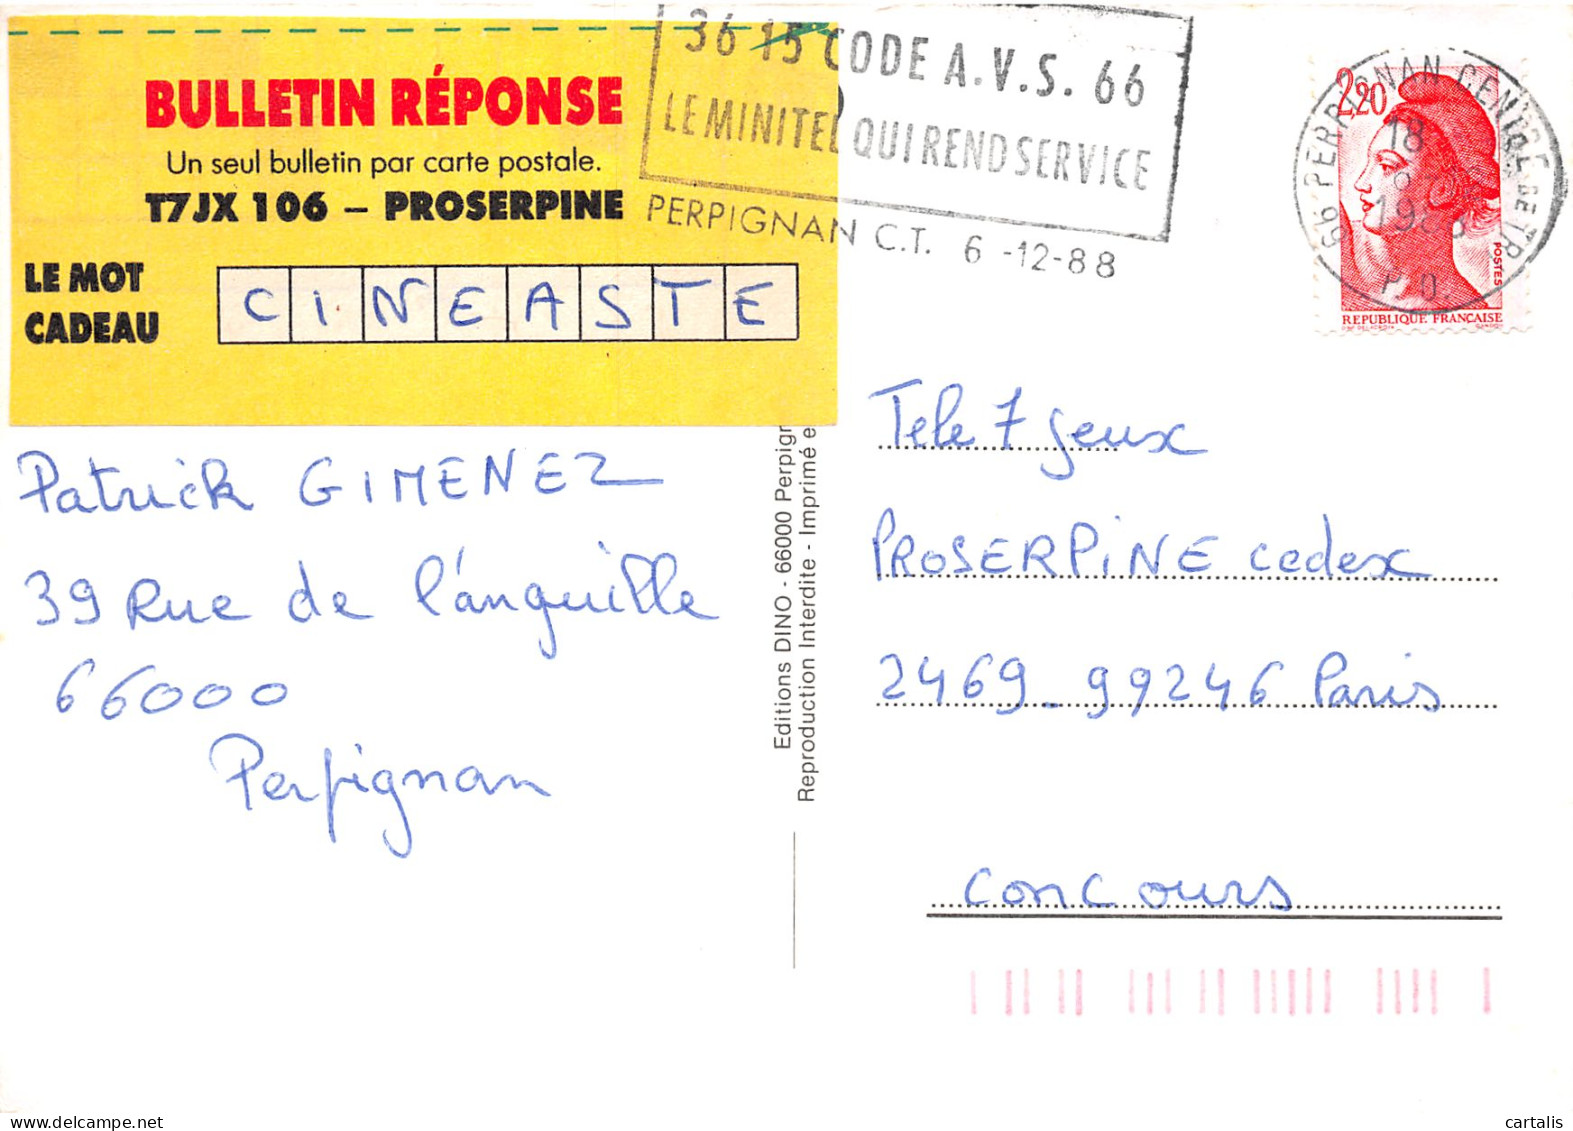 BULLETIN RÉPONSE
Un seul bulletin par carte postale.
T7JX 106 – PROSERPINE
LE MOT
CADEAU
CINEASTE
36 15 CODE A.V.S. 66
LE MINITEL QUI REND SERVICE
PERPIGNAN C.T. 6 -12-88
2,20
POSTES
REPUBLIQUE FRANÇAISE
66 PERPIGNAN CENTRE DE TRI
18
P. O.
Patrick GIMENEZ
39 Rue de l'anguille
66000
Perpignan
Editions DINO - 66000 Perpign
Reproduction Interdite - Imprimé e
Tele 7 jeux
PROSERPINE cedex
2469_99246 Paris
concours
cartalis
delcampe.net